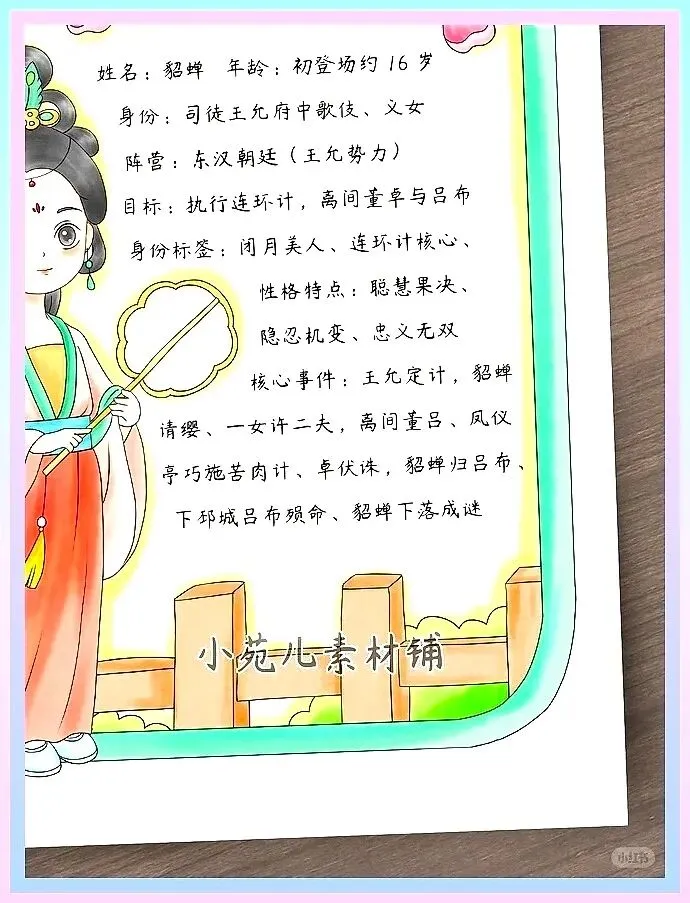 姓名：貂蝉 年龄：初登场约16岁
身份：司徒王允府中歌伎、义女
阵营：东汉朝廷（王允势力）
目标：执行连环计，离间董卓与吕布
身份标签：闭月美人、连环计核心、
性格特点：聪慧果决、
隐忍机变、忠义无双
核心事件：王允定计，貂蝉
请缨、一女许二夫，离间董吕、凤仪
亭巧施苦肉计、卓伏诛，貂蝉归吕布、
下邳城吕布殒命、貂蝉下落成谜
小苑儿素材铺
小红书